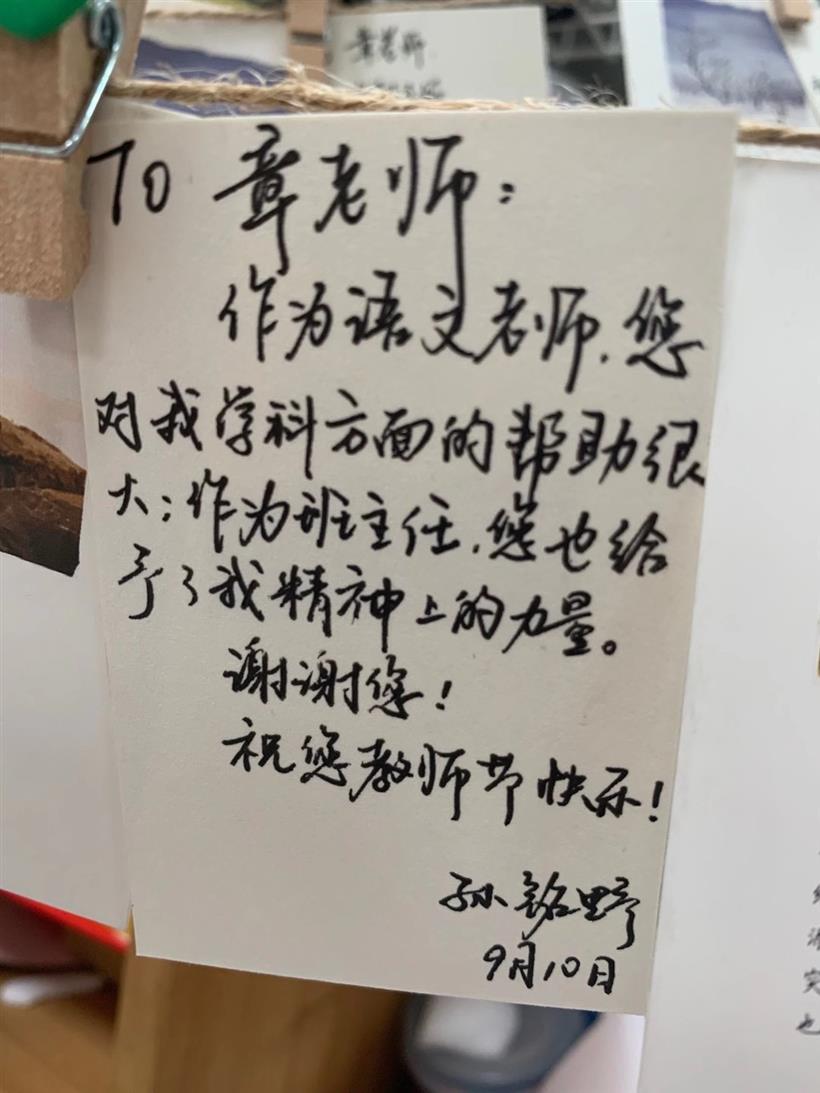 章老师
TO 章老师：
作为语文老师，您
对我学科方面的帮助很
大；作为班主任，您也给
予了我精神上的力量。
谢谢您！
祝您教师节快乐！
孙铭野
9月10日